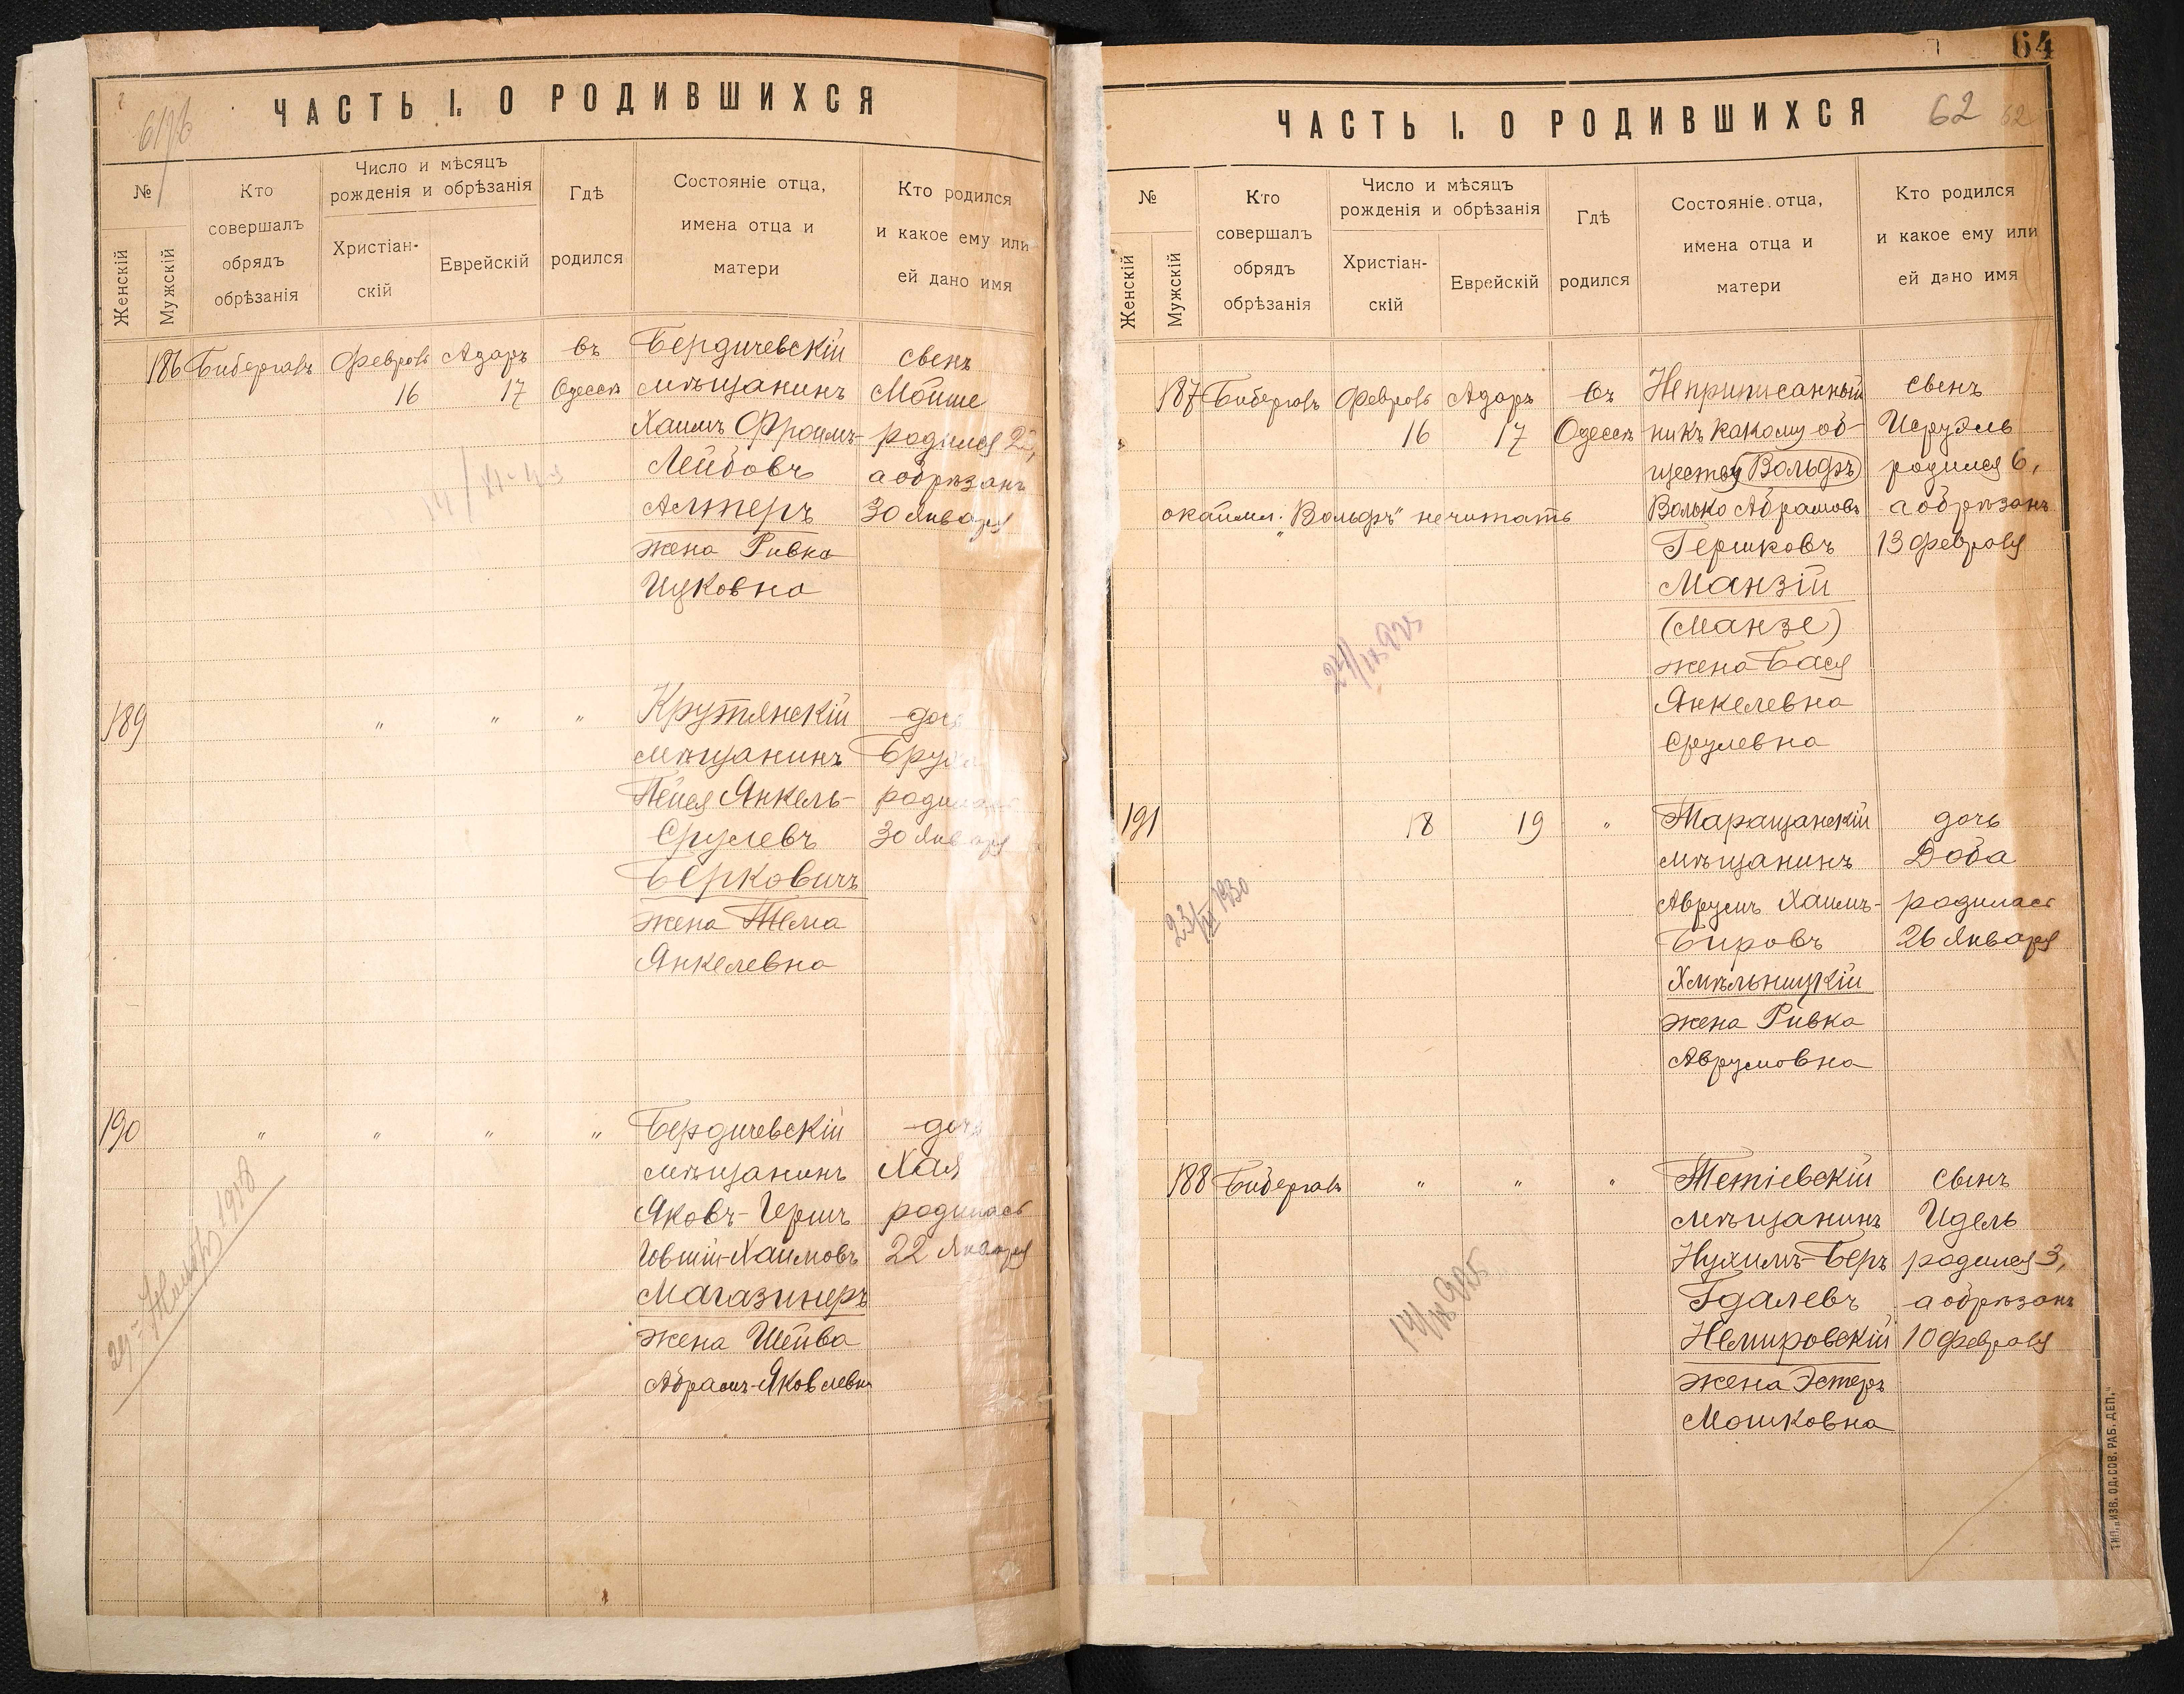 ЧАСТЬ I. О РОДИВШИХСЯ
№
Женскій
Мужскій
Кто
совершалъ
обрядъ
обрѣзанія
Число и мѣсяцъ
рожденія и обрѣзанія
Христіан-
скій
Еврейскій
Гдѣ
родился
Состояніе отца,
имена отца и
матери
Кто родился
и какое ему или
ей дано имя
186 Бибергалъ Февраль Адаръ въ Бердичевскій сынъ
16 17 Одессѣ мѣщанинъ Мойше
Хаимъ Фроимъ- родился 23,
Лейбовъ а обрѣзанъ
Алтеръ 30 Января
жена Ривка
Ицковна
189 " " " Крутянскій дочь
мѣщанинъ Бруха
Пейся Янкель- родилась
Срулевъ 30 Января
Берковичъ
жена Тема
Янкелевна
190 " " " " Бердичевскій дочь
мѣщанинъ Хая
Яковъ-Гершъ родилась
Іовшій-Хаимовъ 22 Января
Магазинеръ
жена Шейва
Абрамъ-Яковлевна
64
ЧАСТЬ I. О РОДИВШИХСЯ 62 62
№
Женскій
Мужскій
Кто
совершалъ
обрядъ
обрѣзанія
Число и мѣсяцъ
рожденія и обрѣзанія
Христіан-
скій
Еврейскій
Гдѣ
родился
Состояніе отца,
имена отца и
матери
Кто родился
и какое ему или
ей дано имя
187 Бибергалъ Февраль Адаръ въ Неприписанный сынъ
16 17 Одессѣ ни къ какому об- Исруэль
ществу (Вольфъ) родился 6,
окаймл. „Вольфъ" не читать Волько Абрамовъ а обрѣзанъ
Гершковъ 13 Февраля
Манзій
(Манзе)
жена Бася
Янкелевна
Срулевна
191 18 19 " Таращанскій дочь
мѣщанинъ Доба
Аврумъ Хаимъ- родилась
Бировъ 26 Января
Хмѣльницкій
жена Ривка
Аврумовна
23/III 1930
188 Бибергалъ " " " Тетіевскій сынъ
мѣщанинъ Идель
Нухимъ-Беръ родился 3,
Гдалевъ а обрѣзанъ
Немировскій 10 Февраля
жена Эстеръ
Мошковна
ТИП. „ИЗВ. ОД. СОВ. РАБ. ДЕП."